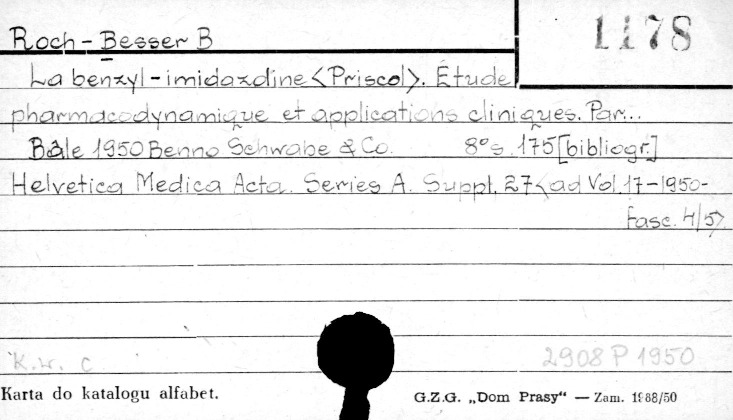 Roch-Besser B
1178
La benzyl-imidazdine <Priscol>. Étude
pharmacodynamique et applications cliniques. Par...
Bâle 1950 Benno Schwabe & Co. 8° s. 175 [bibliogr.]
Helvetica Medica Acta. Series A. Suppl. 27 <ad Vol. 17-1950-
Fasc. 4/5>
K.w. c
2908 P 1950
Karta do katalogu alfabet.
G.Z.G. „Dom Prasy" — Zam. 1988/50